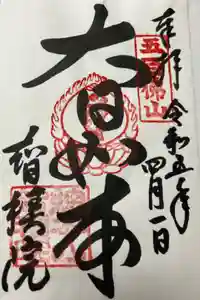 奉拝
五百佛山
令和五年四月一日
大日如来
智積院